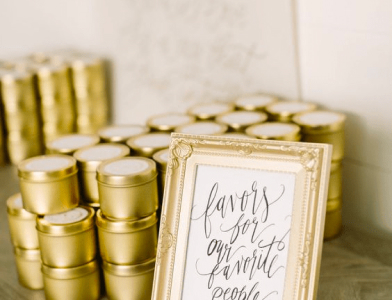 favors
for
our
favorite
people